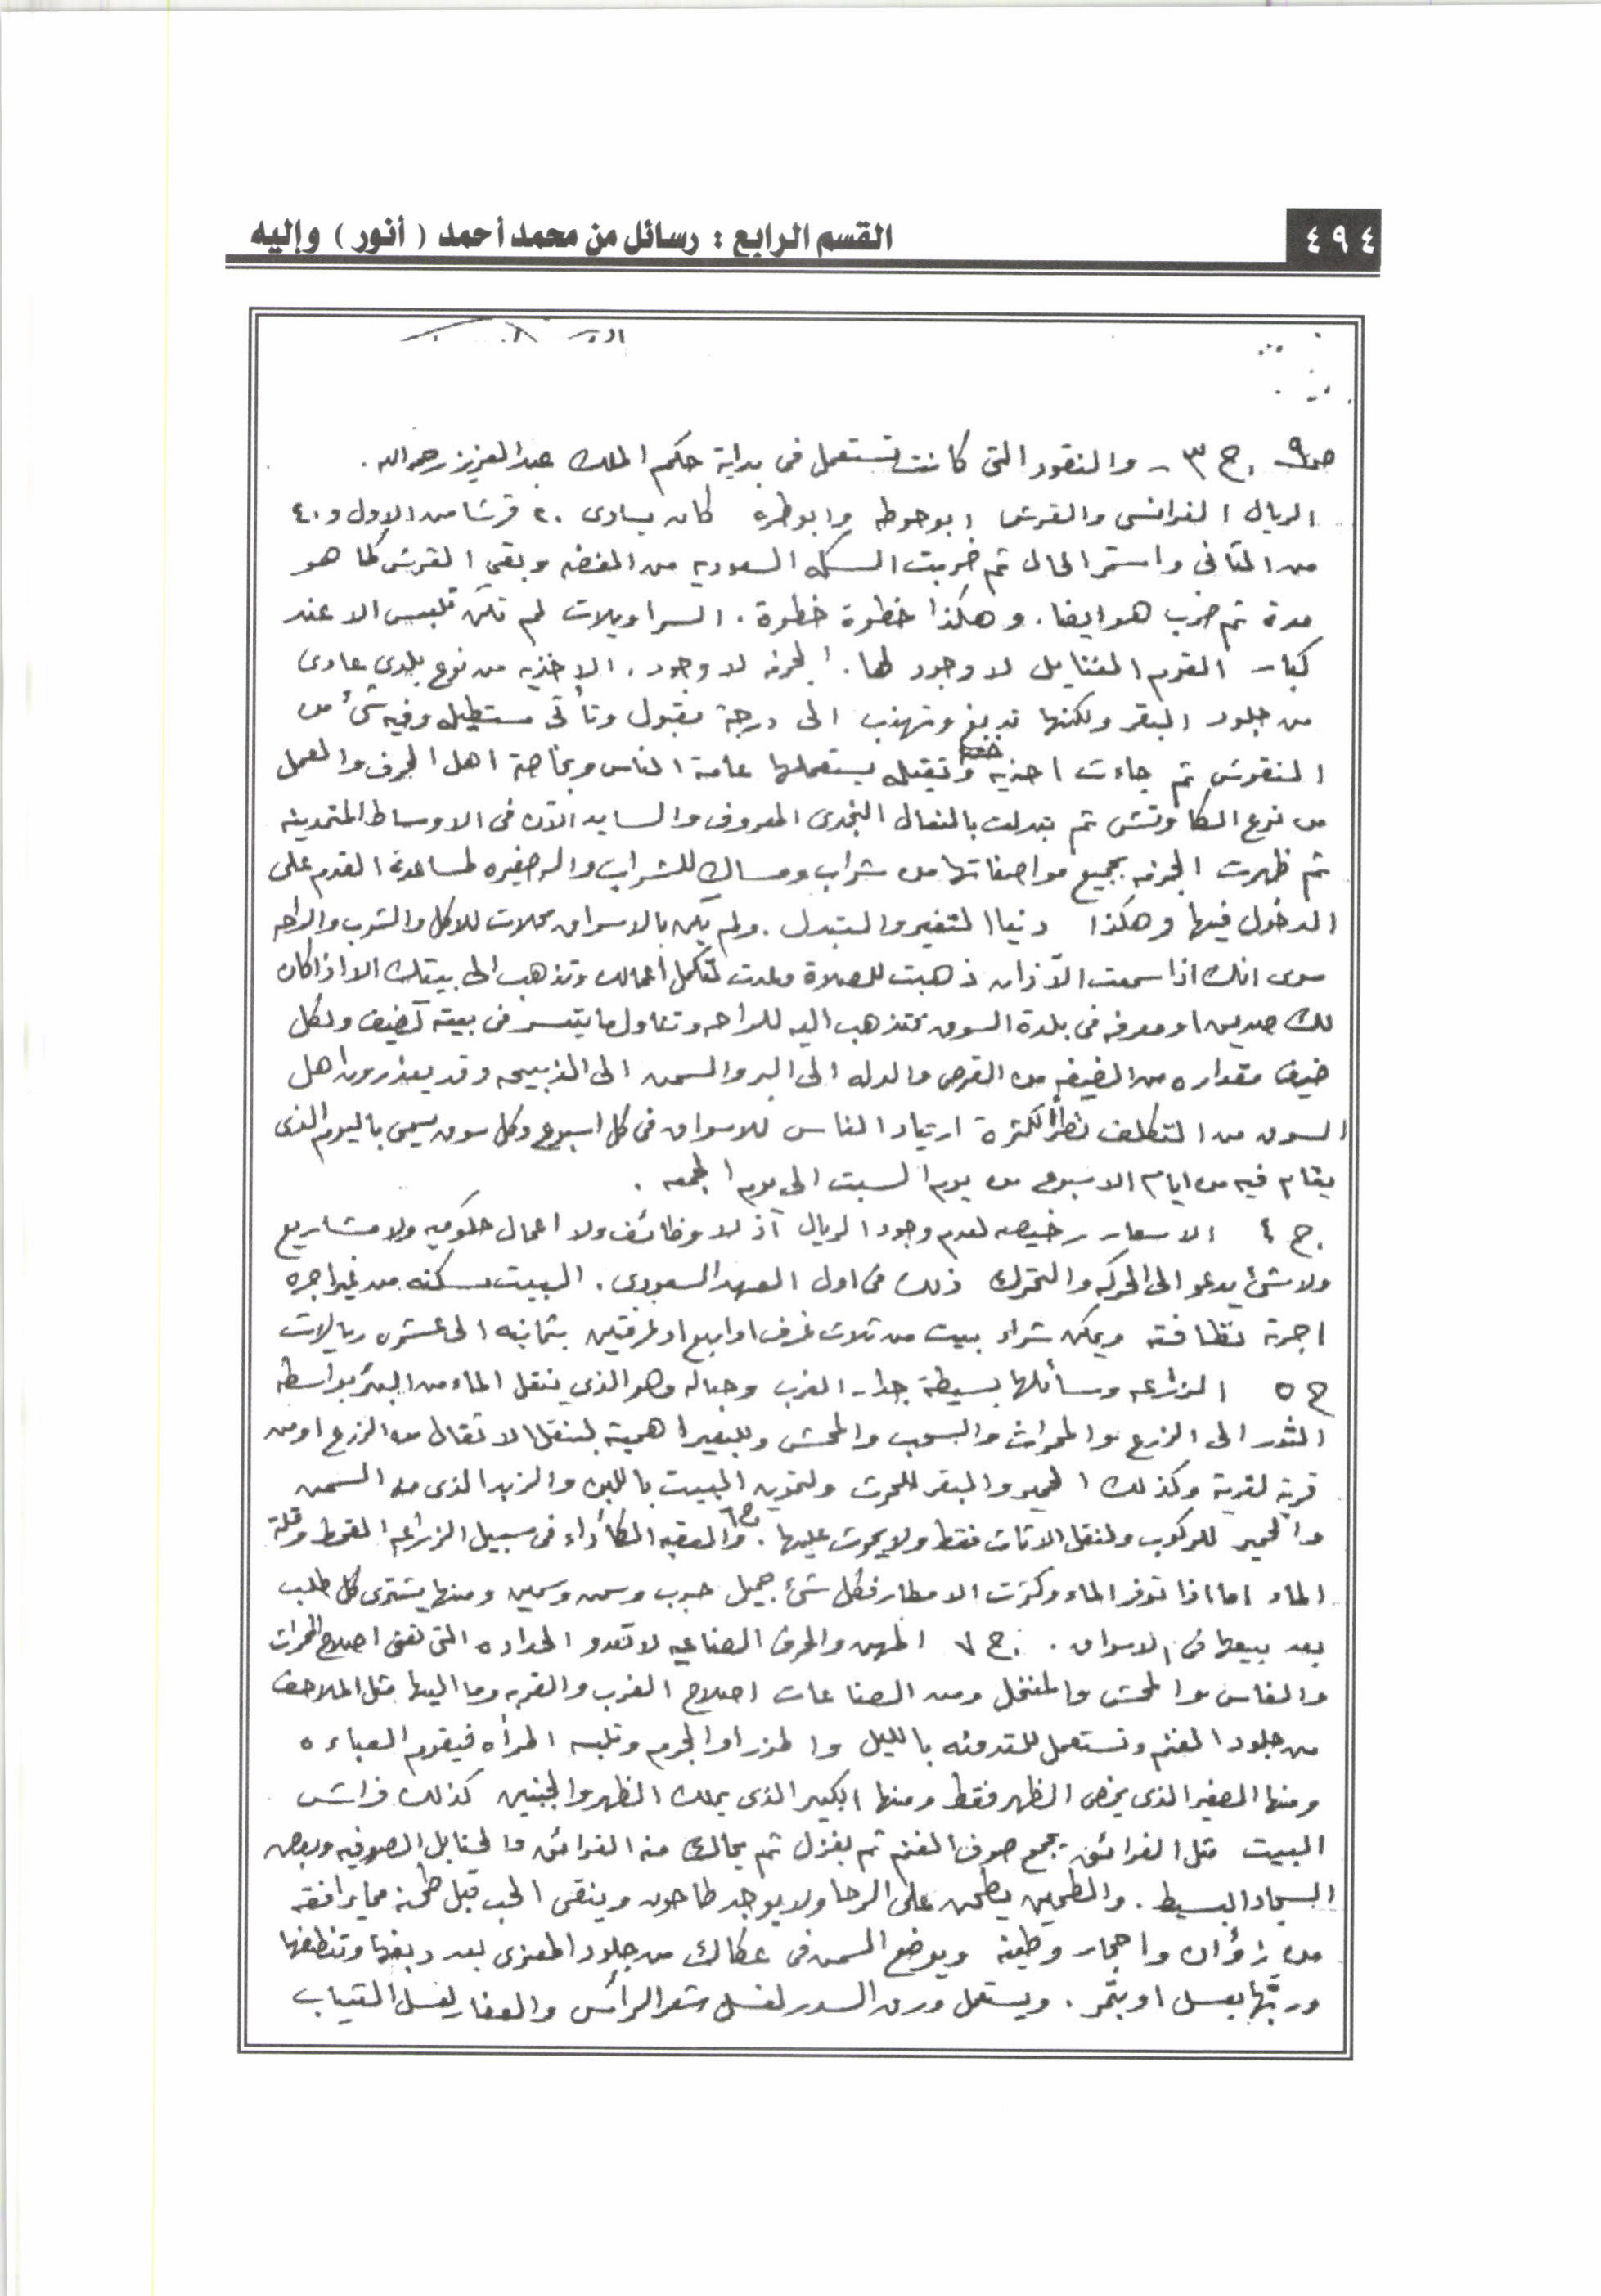 ٤٩٤
القسم الرابع : رسائل من محمد أحمد ( أنور ) وإليه
ص٩ . ج ٣ - والنقود التى كانت تستعمل فى بداية حكم الملك عبدالعزيز رحمه الله .
الريال الفرانسى والقرش ابوحوطه وابوطره كان يساوى ٢٠ قرشا من الاول و ٤٠
من الثانى واستمر الحال ثم ضربت السكه السعوديه من الفضه وبقى القرش كما هو
مدة ثم ضرب هو ايضا . وهكذا خطوة خطوة . السراويلات لم تكن تلبس الا عند
كبار القوم الفنايل لا وجود لها . الجزمه لا وجود . الاحذيه من نوع بلدى عادى
من جلود البقر ولكنها تدبغ وتهذب الى درجة مقبول وتأتى مستطيله وفيه شئ من
النقوش ثم جاءت احذيه وثقيله يستعملها عامة الناس وبخاصة اهل الحرف والعمل
من نوع الكاوتش ثم تبدلت بالنعال النجدى المعروف والسايد الآن فى الاوساط المتمدينه
ثم ظهرت الجزمه بجميع مواصفاتها من شراب ومساك للشراب والـ صغيره لمساعدة القدم على
الدخول فيها وهكذا دنيا التغير والتبدل . ولم يكن بالاسواق محلات للاكل والشرب والراحه
سوى انك اذا سمعت الآذان ذهبت للصلاة وعدت لتكمل أعمالك وتذهب الى بيتك الا اذا كان
لك صديق او معرفه فى بلدة السوق تذهب اليه للراحه وتناول مايتيسر فى بيته كضيف ولكل
ضيف مقداره من الضيفه من القرص والدله الى البر والسمن الى الذبيحه وقد يعذرون اهل
السوق من التكلف نظرا لكثرة ارتياد الناس للاسواق فى كل اسبوع وكل سوق يسمى باليوم الذى
يقام فيه من ايام الاسبوع من يوم السبت الى يوم الجمعه .
. ج ٤ الاسعار رخيصه لعدم وجود الريال اذ لا وظائف ولا اعمال حكوميه ولا مشاريع
ولا شئ يدعو الى الحركه والتحرك ذلك فى اول العهد السعودى . البيت سكنه من غير اجره
اجرة نظافته ويمكن شراء بيت من ثلاث غرف او اربع او غرفتين بثمانيه الى عشره ريالات
ج ٥ الزراعه وسائلها بسيطة جدا - الغرب وحباله وهو الذى ينقل الماء من البئر بواسطة
الثور الى الزرع والمحراث والسحب والمحش وللبعير اهمية لنقل الاثقال من الزرع او من
قرية لقرية وكذلك الحمير والبقر للحرث ولتموين البيت باللبن والزبد الذى منه السمن
والحمير للركوب ولنقل الاثاث فقط ولا يحرث عليها . ج٦ والعقبه الكأداء فى سبيل الزراعه القحط وقلة
الماء اما اذا توفر الماء وكثرت الامطار فكل شئ جميل حبوب وسمن وسمين ومنها يشترى كل طلب
بعد بيعها فى الاسواق . ج ٧ المهن والحرف الصناعيه لا تعدو الحداده التى تعنى اصلاح المحراث
والفاس والمحش والمنخل ومن الصناعات اصلاح الغرب والقربه وما اليها مثل الملاحف
من جلود الغنم وتستعمل للتدفئه بالليل و او الجرم وتلبسه المرأه فيقوم العباءه
ومنها الصغير الذى يخص الظهر فقط ومنها الكبير الذى يملك الظهر والجنبين كذلك فراش
البيت مثل الفرائق يجمع صوف الغنم ثم يغزل ثم يحاك منه الفرائق والحنابل الصوفيه وبعض
السجاد البسيط . والطحين يطحن على الرحا ولا يوجد طاحون وينقى الحب قبل طحنه مما يرافقه
من زؤان واحجار وطينه ويوضع السمن فى عكاك من جلود المعزى بعد دبغها وتنظيفها
وربّها بعسل او بتمر . ويستعمل ورق السدر لغسل شعر الرأس والعفار لغسل الثياب